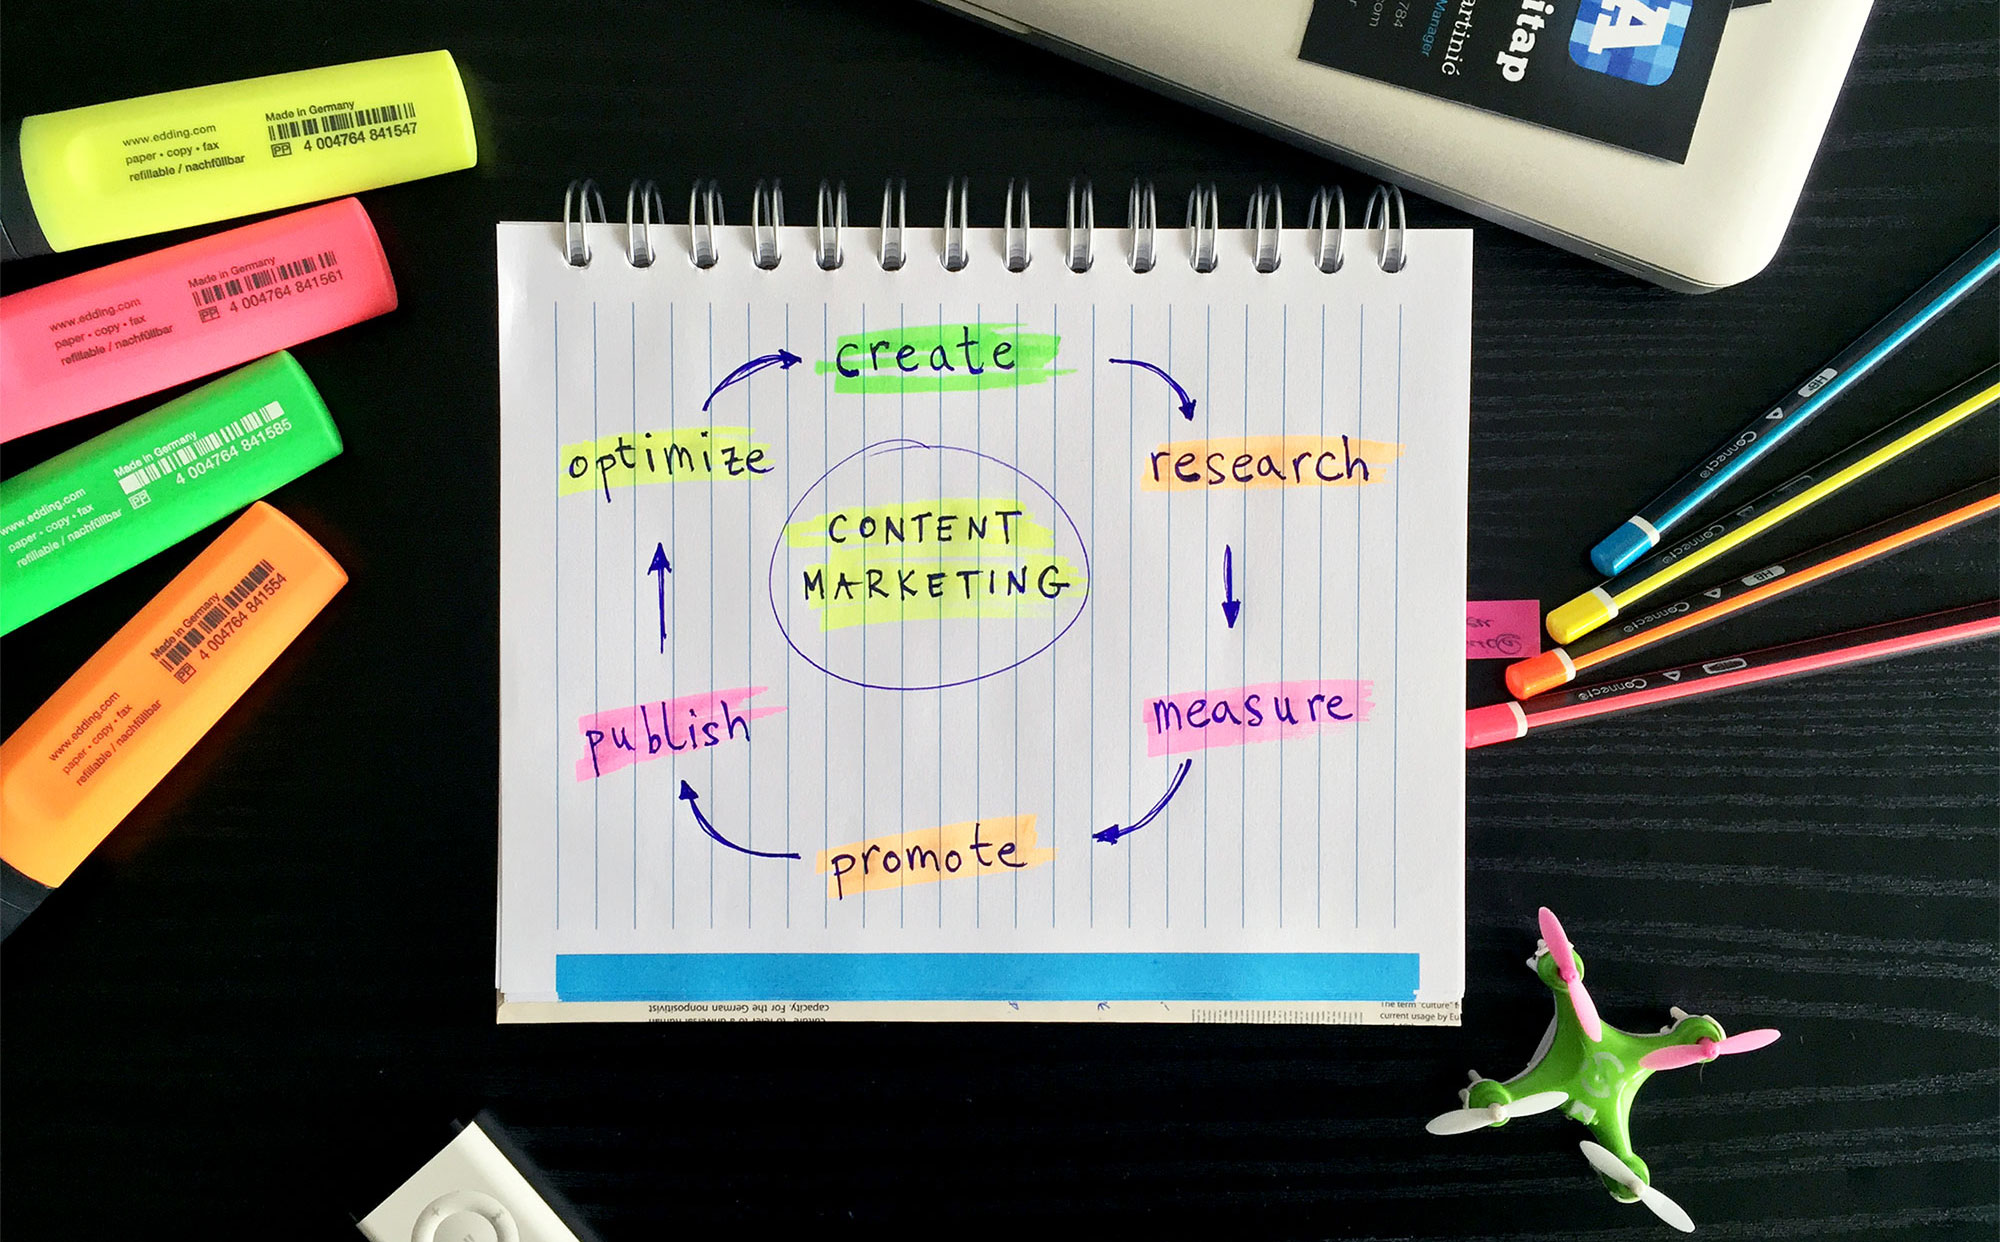 www.edding.com
paper • copy • fax
refillable / nachfüllbar
Made in Germany
PP 4 004764 841547
www.edding.com
paper • copy • fax
refillable / nachfüllbar
Made in Germany
PP 4 004764 841561
www.edding.com
paper • copy • fax
refillable / nachfüllbar
Made in Germany
PP 4 004764 841585
www.edding.com
paper • copy • fax
refillable / nachfüllbar
Made in Germany
PP 4 004764 841554
create
research
measure
promote
publish
optimize
CONTENT
MARKETING
A
itap
artinić
Manager
784
com
HB
Connect
Connect
HB
Connect
Connect
capacity. For the German nonpositivist
The term "culture"
current usage by